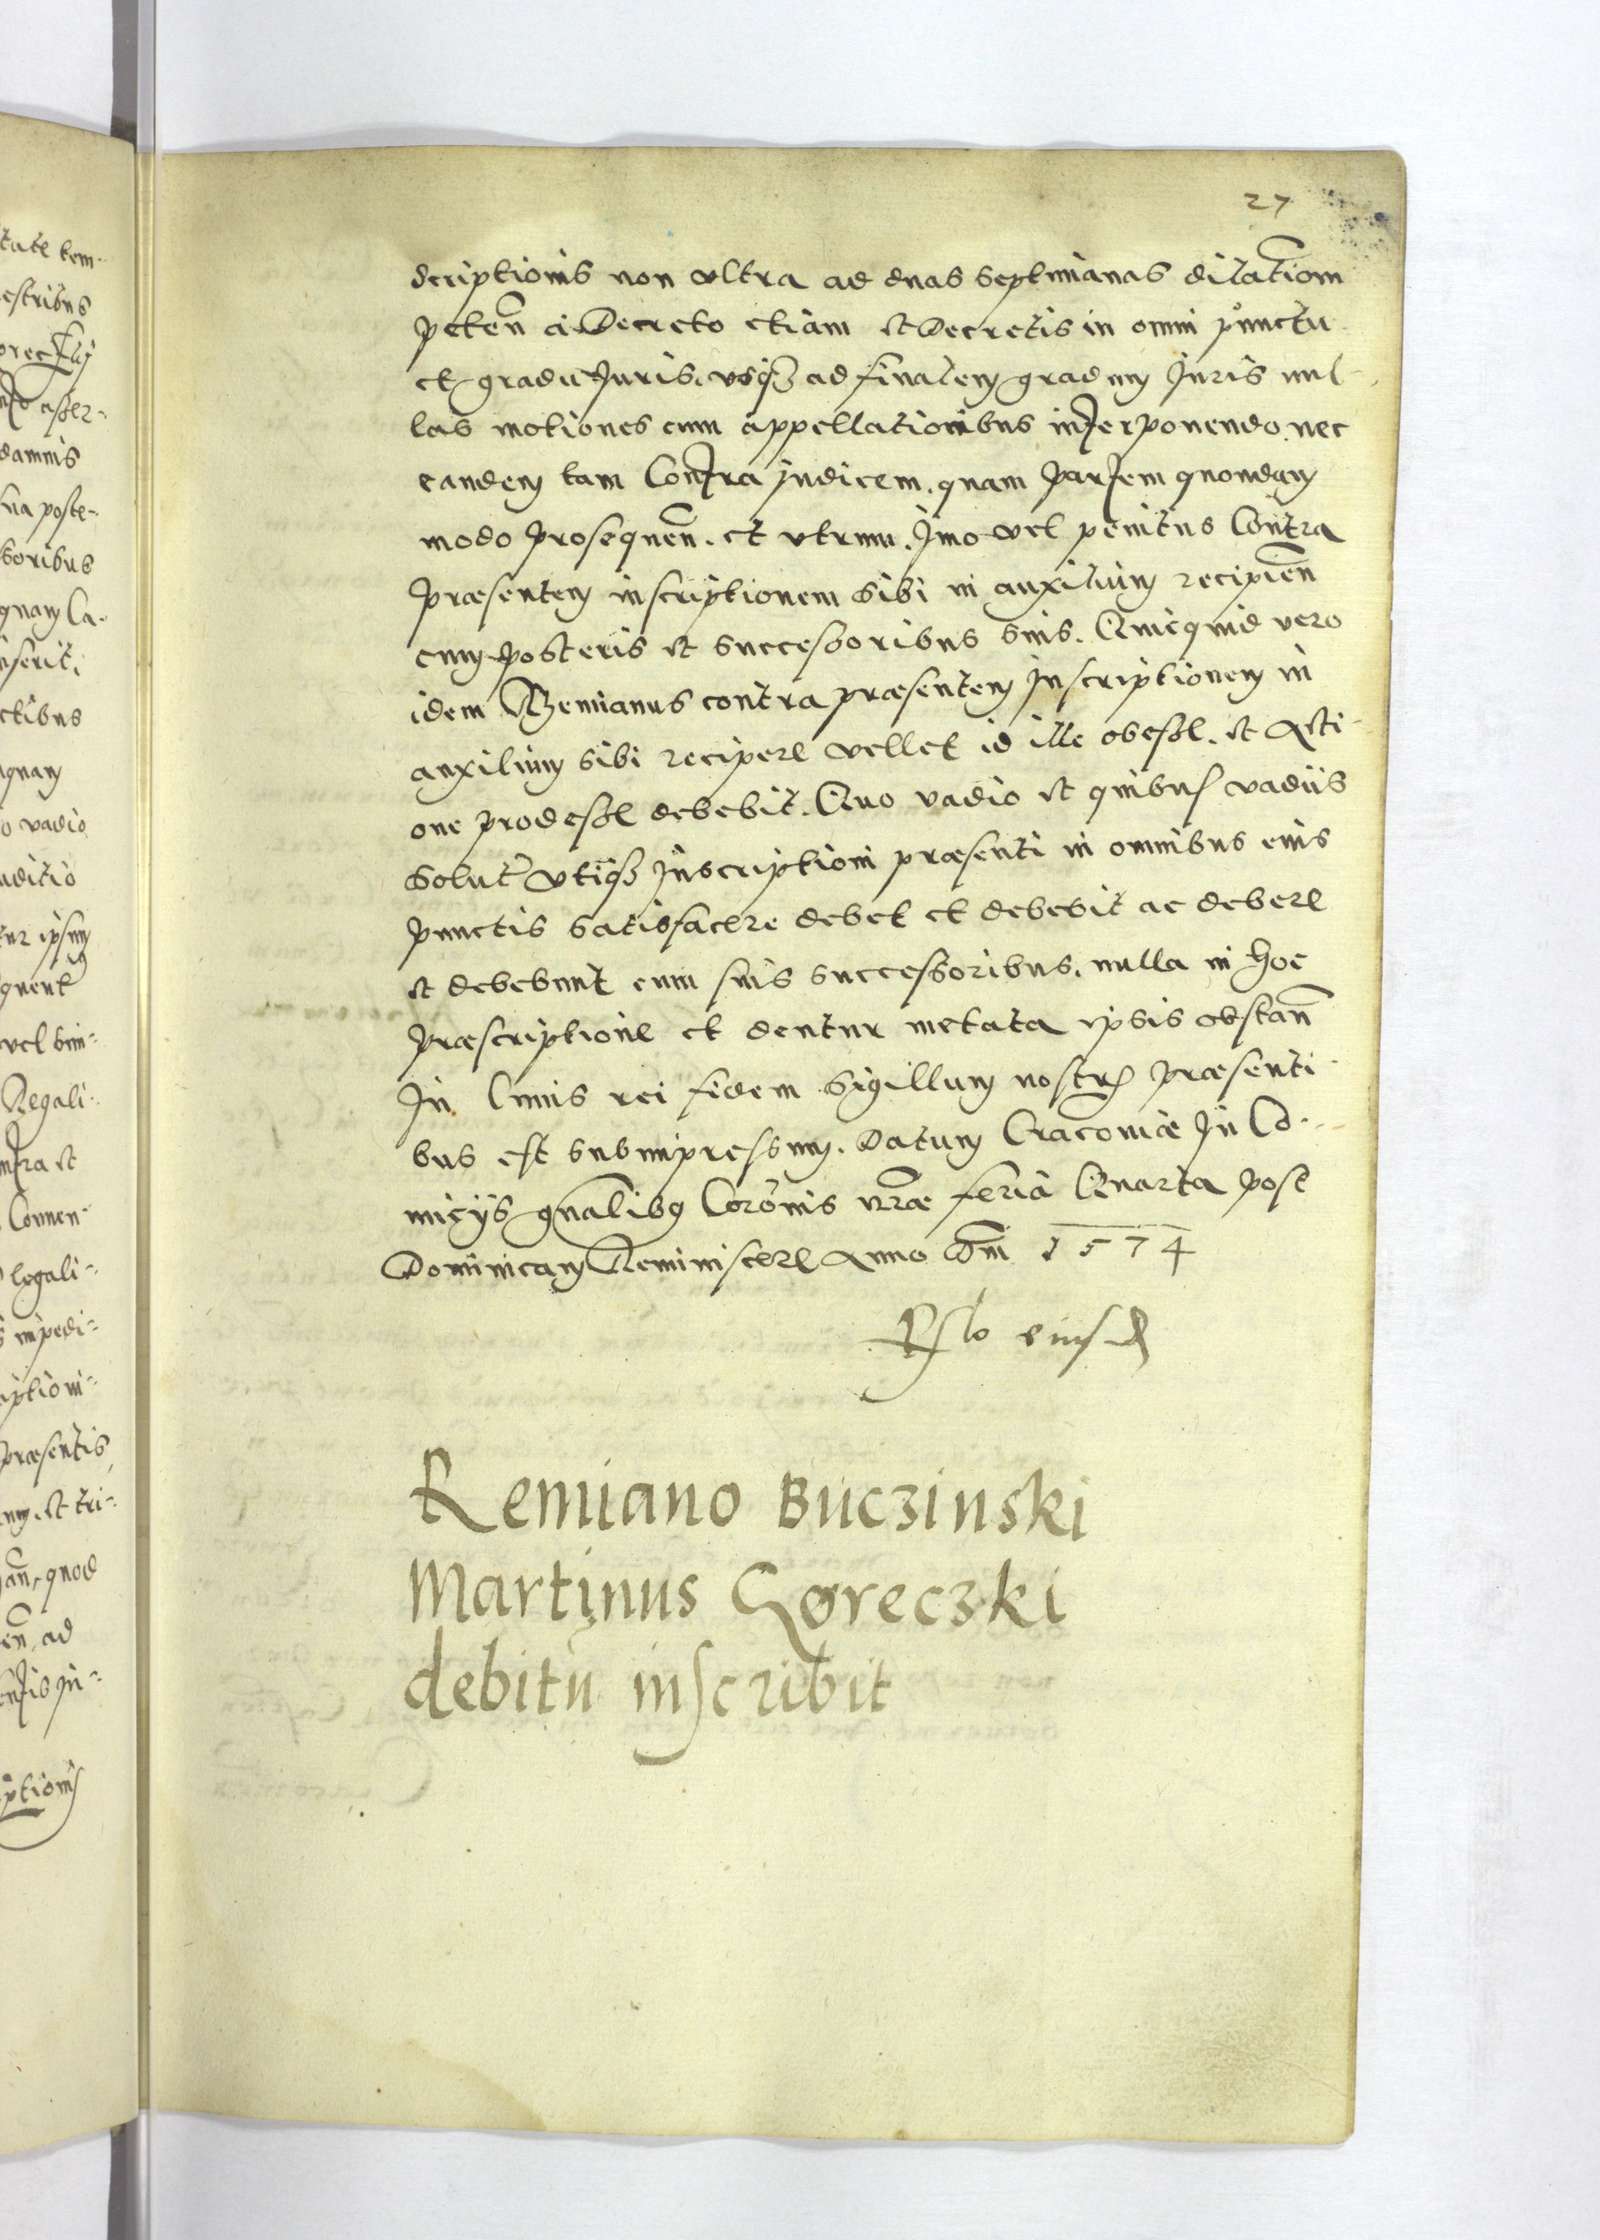 27
scriptionis non ultra ad duas septimanas dilationem
peten̄ à Decreto etiam et Decretis in omni puncto
et gradu Juris, usq3 ad finalem gradum Juris nul-
las motiones cum appellationibus interponendo, nec
eandem tam Contra judicem, quam Partem quondam
modo Prosequen̄. et utrum, Imo vel penitus Contra
Præsentem inscriptionem sibi in auxilium recipien̄
cum posteris et successoribus suis. Quicquid vero
idem Remianus contra præsentem Inscriptionem in
auxilium sibi recipere vellet id ille obesse. et Acti-
one prodesse debebit. Quo vadio et quibus vadiis
Solut utiq3 Inscriptioni præsenti in omnibus eius
punctis satisfacere debet et debebit ac debere
et debebunt cum suis successoribus, nulla in hoc
Præscriptione et dentur metata ipsis obstan̄
In Cuius rei fidem Sigillum nostrum præsenti-
bus est subimpressum. Datum Cracoviæ In Co-
micÿs gnalibq Coro͞nis nr̄æ feria Quarta post
Dominicam Reminiscere Anno Dni 1574
Rlo eiusd
Remiano Buczinski
Martinus Goreczki
debitū inscribit
tate tem-
estribus
asser-
damnis
sua poste-
soribus
quam Ca-
nserit,
ctibus
nquam
o vadio
nditio
tur ipsum
quent
vel bin-
Regali-
ntra et
Conven-
legali-
s impedi-
iptioni-
præsentis
um. et tri-
an̄, quod
en̄, ad
entis In-
ptionis